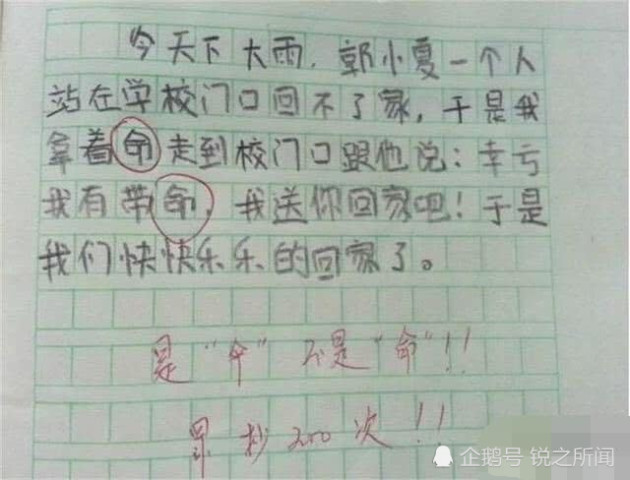 今天下大雨，郭小夏一个人
站在学校门口回不了家，于是我
拿着命走到校门口跟他说：幸亏
我有带命，我送你回家吧！于是
我们快快乐乐的回家了。
是“伞”不是“命”！！
罚抄200次！！
企鹅号 锐之所闻